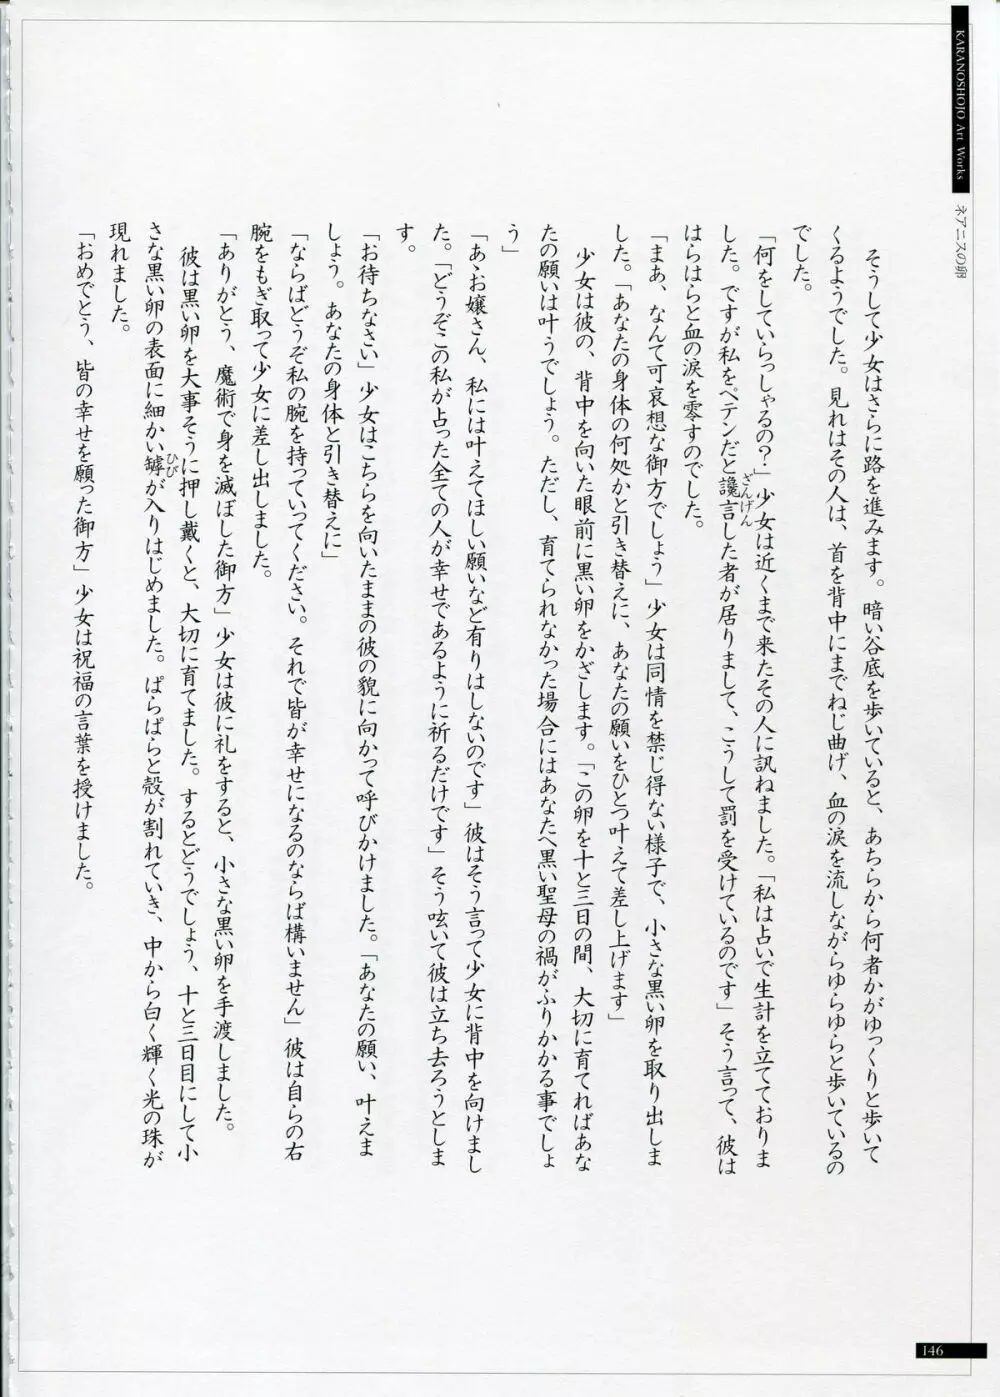 KARANOSHOJO Art Works
ネアニスの卵
そうして少女はさらに路を進みます。暗い谷底を歩いていると、あちらから何者かがゆっくりと歩いて
くるようでした。見ればその人は、首を背中にまでねじ曲げ、血の涙を流しながらゆらゆらと歩いているの
でした。
「何をしていらっしゃるの？」少女は近くまで来たその人に訊ねました。「私は占いで生計を立てておりま
した。ですが私をペテンだと讒言した者が居りまして、こうして罰を受けているのです」そう言って、彼は
ざんげん
はらはらと血の涙を零すのでした。
「まあ、なんて可哀想な御方でしょう」少女は同情を禁じ得ない様子で、小さな黒い卵を取り出しま
した。「あなたの身体の何処かと引き替えに、あなたの願いをひとつ叶えて差し上げます」
少女は彼の、背中を向いた眼前に黒い卵をかざします。「この卵を十と三日の間、大切に育てればあな
たの願いは叶うでしょう。ただし、育てられなかった場合にはあなたへ黒い聖母の禍がふりかかる事でしょ
う」
「あゝお嬢さん、私には叶えてほしい願いなど有りはしないのです」彼はそう言って少女に背中を向けまし
た。「どうぞこの私が占った全ての人が幸せであるように祈るだけです」そう呟いて彼は立ち去ろうとしま
す。
「お待ちなさい」少女はこちらを向いたままの彼の貌に向かって呼びかけました。「あなたの願い、叶えま
しょう。あなたの身体と引き替えに」
「ならばどうぞ私の腕を持っていってください。それで皆が幸せになるのならば構いません」彼は自らの右
腕をもぎ取って少女に差し出しました。
「ありがとう、魔術で身を滅ぼした御方」少女は彼に礼をすると、小さな黒い卵を手渡しました。
彼は黒い卵を大事そうに押し戴くと、大切に育てました。するとどうでしょう、十と三日目にして小
さな黒い卵の表面に細かい罅が入りはじめました。ぱらぱらと殻が割れていき、中から白く輝く光の珠が
ひび
現れました。
「おめでとう、皆の幸せを願った御方」少女は祝福の言葉を授けました。
146